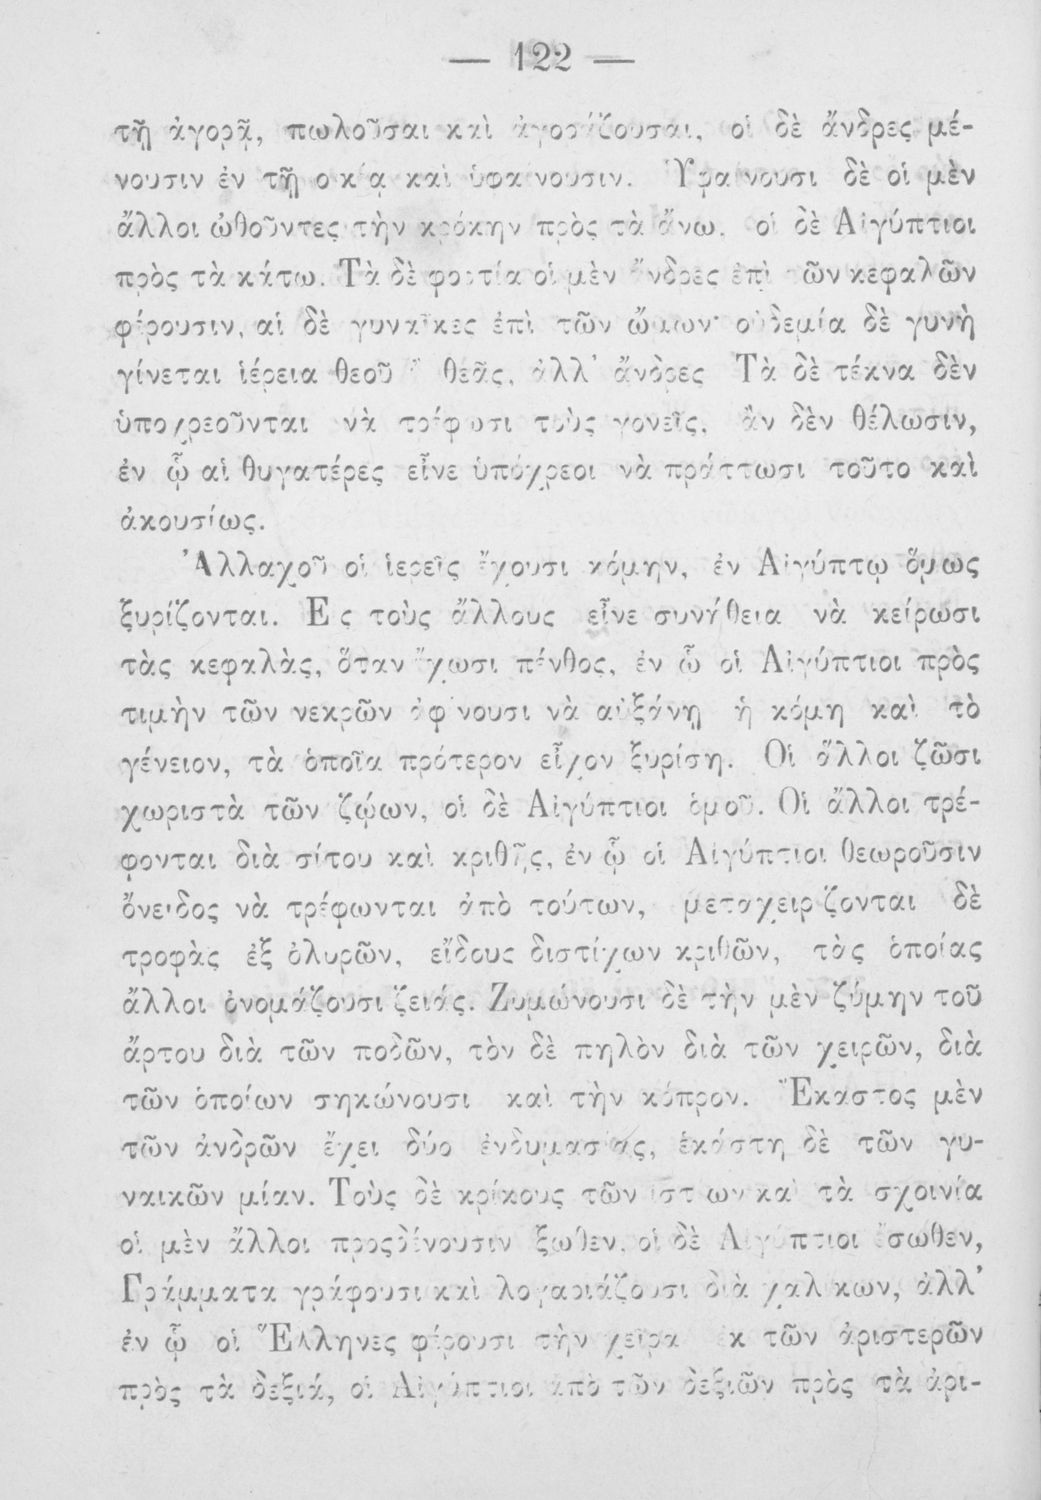 — 122 —
τῇ ἀγορᾷ, πωλοῦσαι καὶ ἀγοράζουσαι, οἱ δὲ ἄνδρες μέ-
νουσιν ἐν τῇ οἰκίᾳ καὶ ὑφαίνουσιν. Ὑφαίνουσι δὲ οἱ μὲν
ἄλλοι ὠθοῦντες τὴν κρόκην πρὸς τὰ ἄνω, οἱ δὲ Αἰγύπτιοι
πρὸς τὰ κάτω. Τὰ δὲ φορτία οἱ μὲν ἄνδρες ἐπὶ τῶν κεφαλῶν
φέρουσιν, αἱ δὲ γυναῖκες ἐπὶ τῶν ὤμων· οὐδεμία δὲ γυνὴ
γίνεται ἱέρεια θεοῦ ἢ θεᾶς, ἀλλ' ἄνδρες Τὰ δὲ τέκνα δὲν
ὑποχρεοῦνται νὰ τρέφωσι τοὺς γονεῖς, ἂν δὲν θέλωσιν,
ἐν ᾧ αἱ θυγατέρες εἶνε ὑπόχρεοι νὰ πράττωσι τοῦτο καὶ
ἀκουσίως.
Ἀλλαχοῦ οἱ ἱερεῖς ἔχουσι κόμην, ἐν Αἰγύπτῳ ὅμως
ξυρίζονται. Εἰς τοὺς ἄλλους εἶνε συνήθεια νὰ κείρωσι
τὰς κεφαλὰς, ὅταν ἔχωσι πένθος, ἐν ᾧ οἱ Αἰγύπτιοι πρὸς
τιμὴν τῶν νεκρῶν ἀφίνουσι νὰ αὐξάνῃ ἡ κόμη καὶ τὸ
γένειον, τὰ ὁποῖα πρότερον εἶχον ξυρίση. Οἱ ἄλλοι ζῶσι
χωριστὰ τῶν ζῴων, οἱ δὲ Αἰγύπτιοι ὁμοῦ. Οἱ ἄλλοι τρέ-
φονται διὰ σίτου καὶ κριθῆς, ἐν ᾧ οἱ Αἰγύπτιοι θεωροῦσιν
ὄνειδος νὰ τρέφωνται ἀπὸ τούτων, μεταχειρίζονται δὲ
τροφὰς ἐξ ὀλυρῶν, εἴδους διστίχων κριθῶν, τὰς ὁποίας
ἄλλοι ὀνομάζουσι ζειάς. Ζυμώνουσι δὲ τὴν μὲν ζύμην τοῦ
ἄρτου διὰ τῶν ποδῶν, τὸν δὲ πηλὸν διὰ τῶν χειρῶν, διὰ
τῶν ὁποίων σηκώνουσι καὶ τὴν κόπρον. Ἕκαστος μὲν
τῶν ἀνδρῶν ἔχει δύο ἐνδυμασίας, ἑκάστη δὲ τῶν γυ-
ναικῶν μίαν. Τοὺς δὲ κρίκους τῶν ἱστίων καὶ τὰ σχοινία
οἱ μὲν ἄλλοι προςδένουσιν ἔξωθεν, οἱ δὲ Αἰγύπτιοι ἔσωθεν,
Γράμματα γράφουσι καὶ λογαριάζουσι διὰ χαλίκων, ἀλλ'
ἐν ᾧ οἱ Ἕλληνες φέρουσι τὴν χεῖρα ἐκ τῶν ἀριστερῶν
πρὸς τὰ δεξιά, οἱ Αἰγύπτιοι ἀπὸ τῶν δεξιῶν πρὸς τὰ ἀρι-